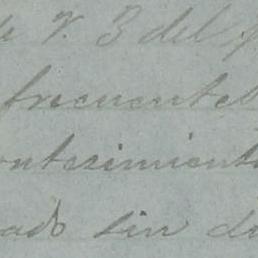 V. 3 del
frecuente
ontecimient
ado sin d